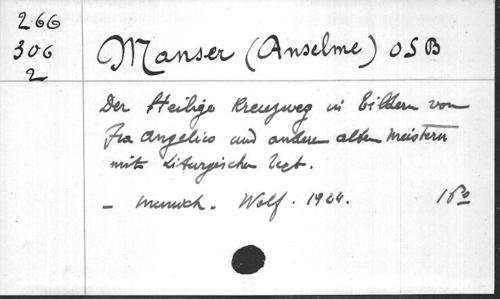 266
306
2
Manser (Anselme) OSB
Der Heilige Kreuzweg in Bildern von
Fra Angelico und anderen alten Meistern
mit Liturgischen Text.
- Munich - Wolf. 1924. 16º